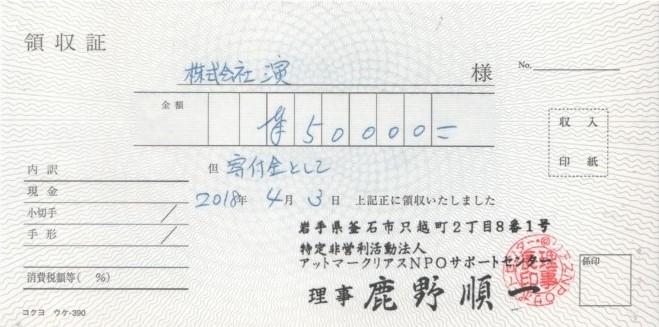 領収証
株式会社 演 様
No.
金額 ¥50000=
収入
印紙
内訳
現金
小切手
手形
消費税額等( %)
但 寄付金として
2018年 4月 3日 上記正に領収いたしました
岩手県釜石市只越町2丁目8番1号
特定非営利活動法人
アットマークリアスNPOサポートセンター
理事 鹿野順一
係印
コクヨ ウケ-390